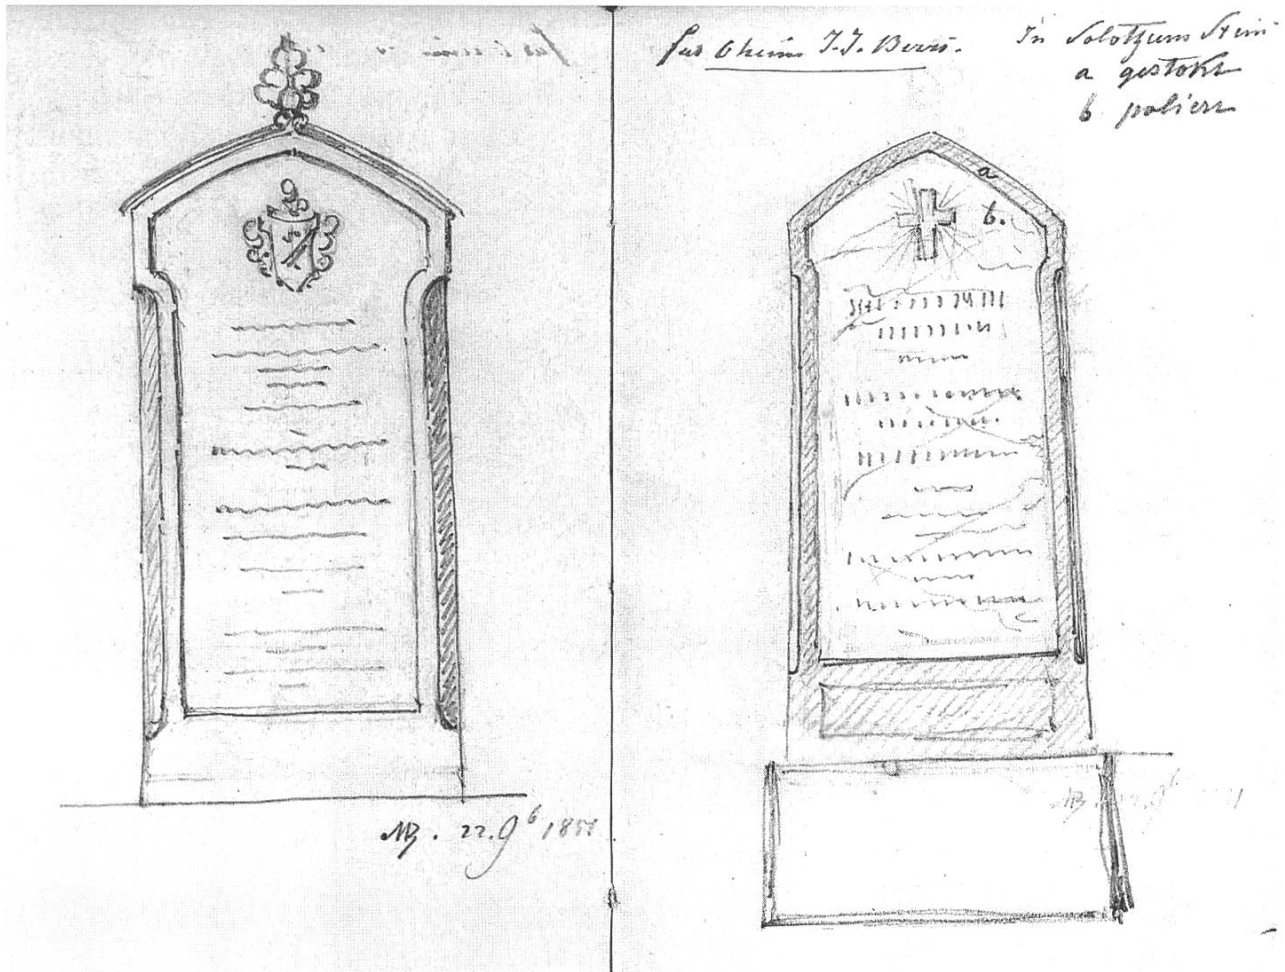 MB. 22. 9b 1851
für Oheim J. J. Berri.
In Solothurn Stein
a gestokt
b poliert
a
b.
MB. 22. 9b